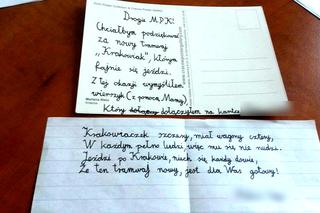 Drogie MPK!
Chciałbym podziękować
za nowy tramwaj
„Krakowiak”, którym
fajnie się jeździ.
Z tej okazji wymyśliłem
wierszyk (z pomocą Mamy),
Który dołączyłem na kartce
Krakowiaczek szczery, miał wagony cztery,
W każdym pełno ludzi, więc mu się nie nudzi.
Jeździ po Krakowie, niech się każdy dowie,
Że ten tramwaj nowy, jest dla Was gotowy!